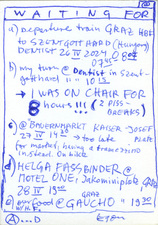 WAITING FOR
a) departure train GRAZ HBF
to SZENTGOTTHARD (Hungary)
DENTIST 26 IV 2024 08
07 45
b) my turn @ Dentist in Szent-
gotthard " " 10 15
→ I WAS ON CHAIR FOR
8 hours!!! (2 PISS-
BREAKS)
c) @ BAUERNMARKT KAISER JOSEF
27 IV 14 30 → too late
for market, having a
instead. On bike.
d) HELGA FASSBINDER @
MOTEL ONE, Jakominiplatz GRAZ
28 IV 19
e) my food @ GAUCHO " 19 30
A...D